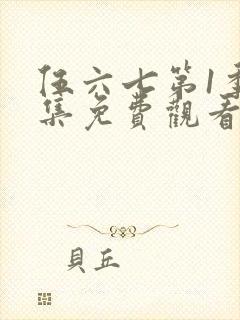 伍六七第1季
集免費觀看
貝丘